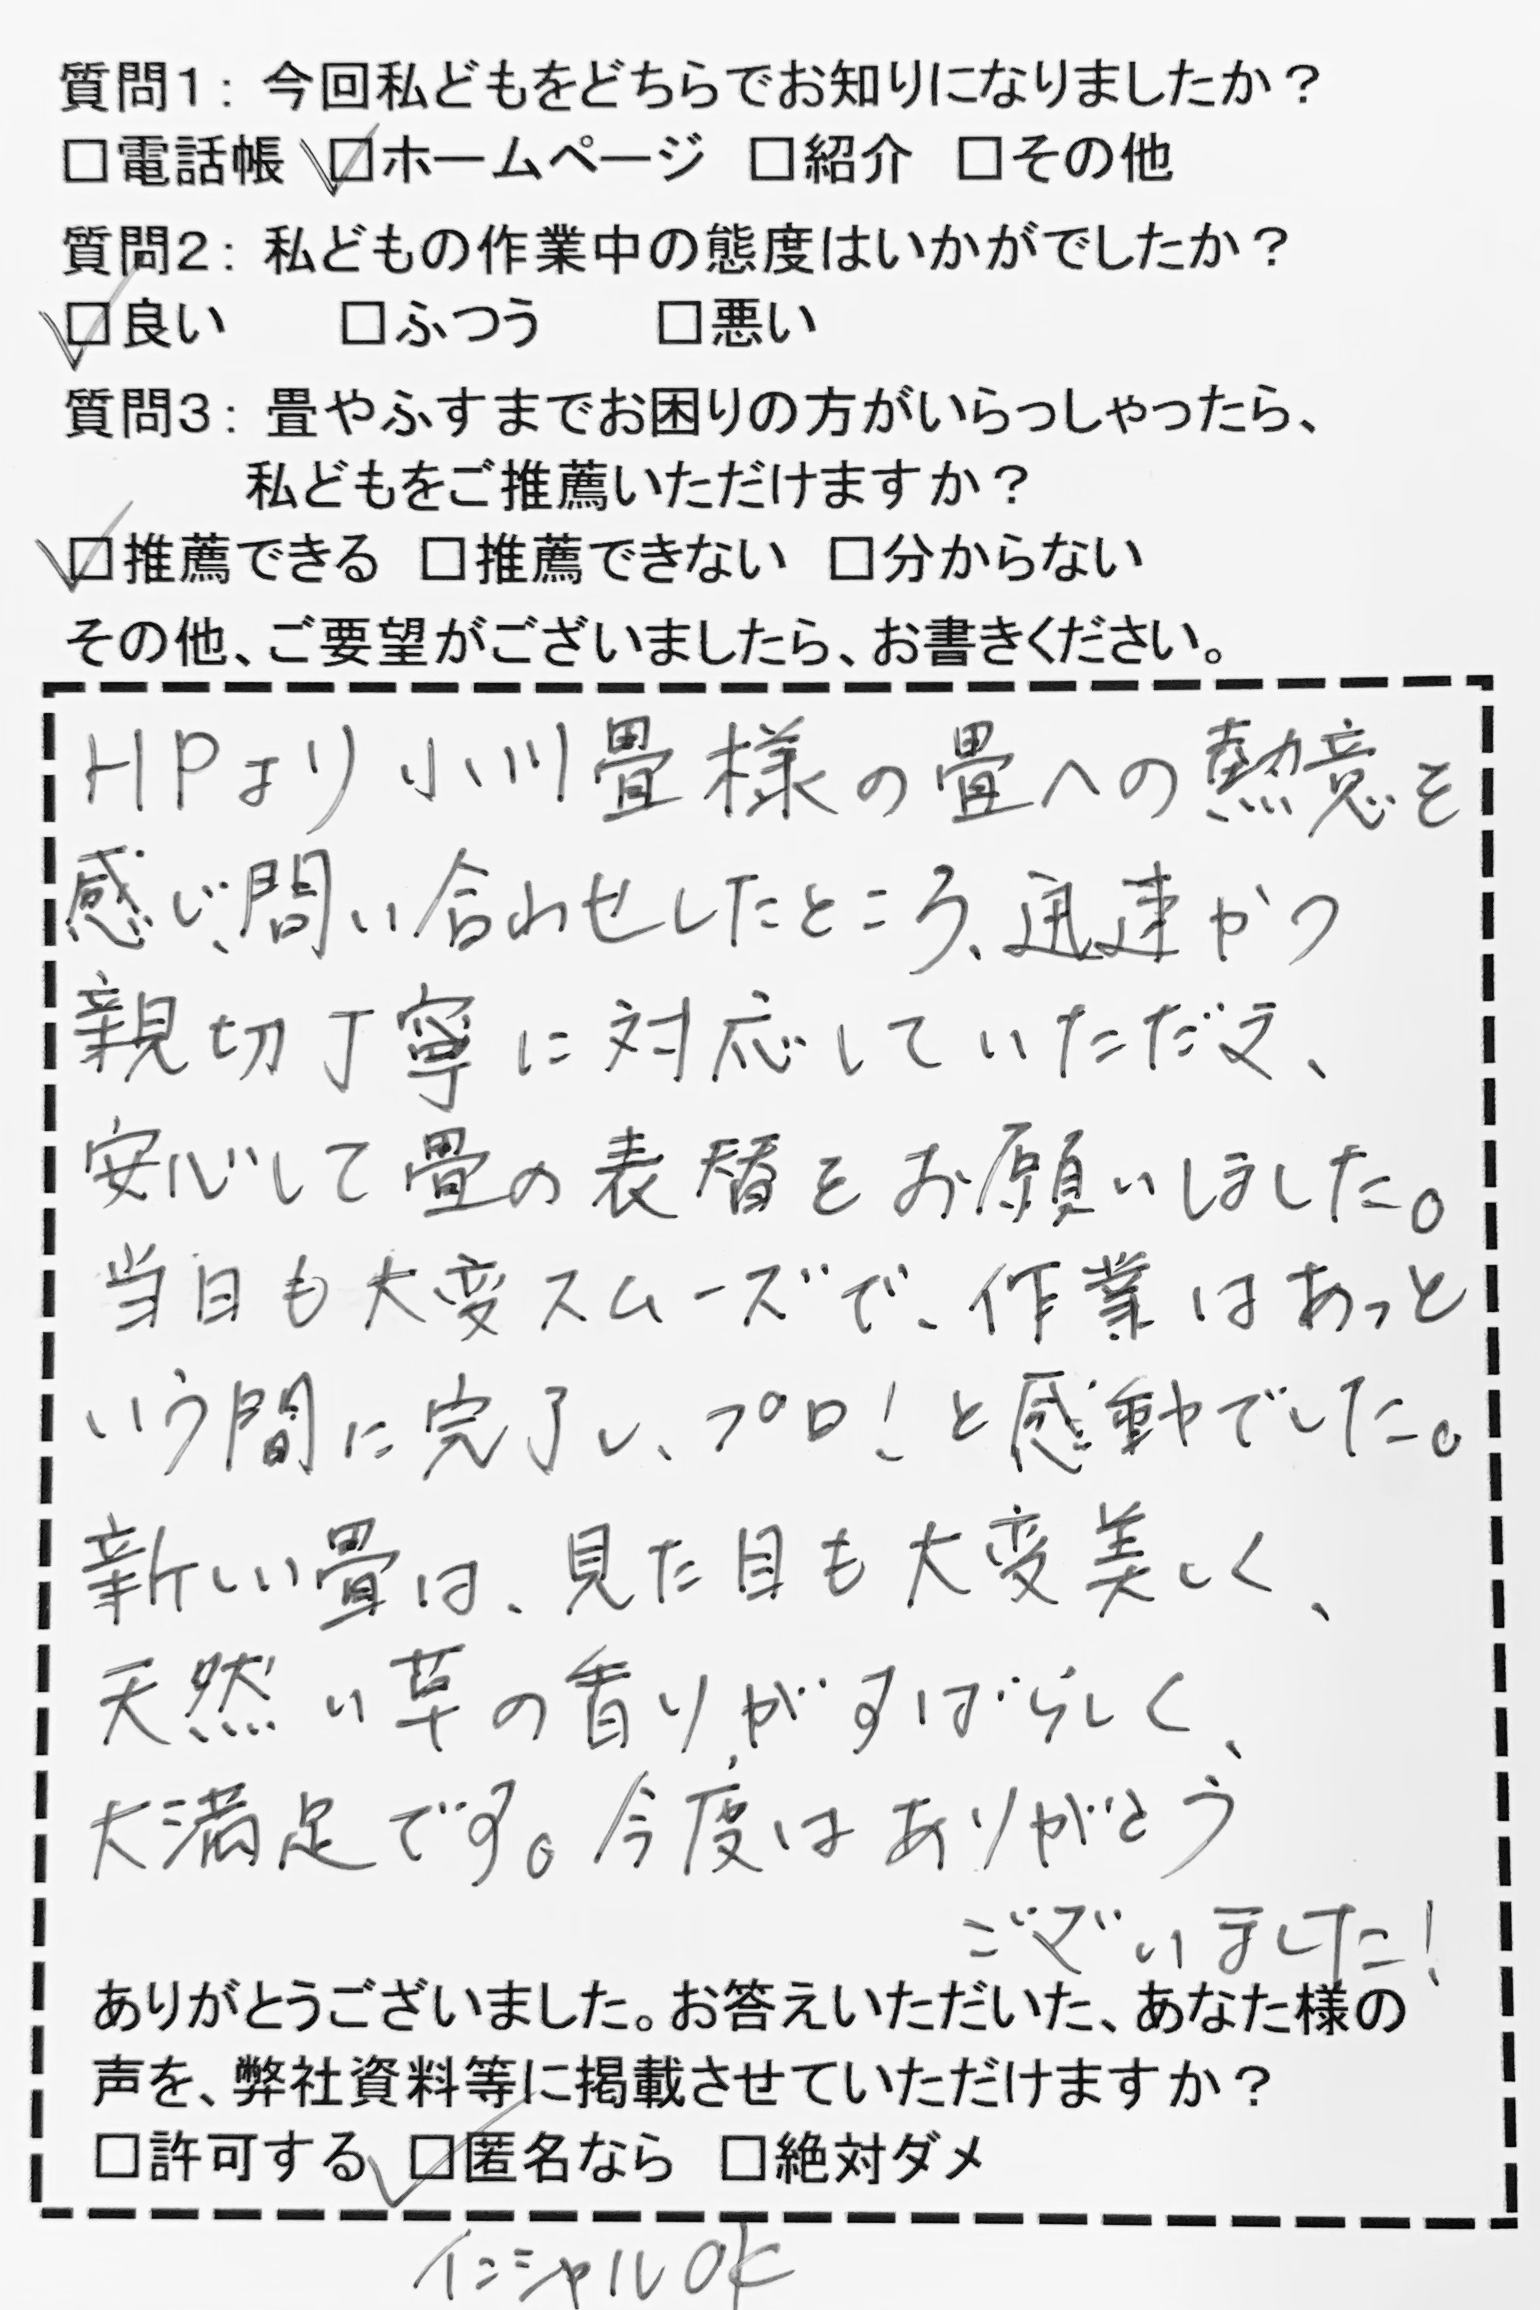 質問1：今回私どもをどちらでお知りになりましたか？
□電話帳 ☑ホームページ □紹介 □その他
質問2：私どもの作業中の態度はいかがでしたか？
☑良い □ふつう □悪い
質問3：畳やふすまでお困りの方がいらっしゃったら、
私どもをご推薦いただけますか？
☑推薦できる □推薦できない □分からない
その他、ご要望がございましたら、お書きください。
HPより小川畳様の畳への熱意を
感じ、問い合わせしたところ、迅速かつ
親切丁寧に対応していただえ、
安心して畳の表替をお願いしました。
当日も大変スムーズで、作業はあっと
いう間に完了し、プロ！と感動でした。
新しい畳は、見た目も大変美しく、
天然い草の香りがすばらしく、
大満足です。今度はありがとう
ございました！
ありがとうございました。お答えいただいた、あなた様の
声を、弊社資料等に掲載させていただけますか？
□許可する ☑匿名なら □絶対ダメ
イニシャルOK